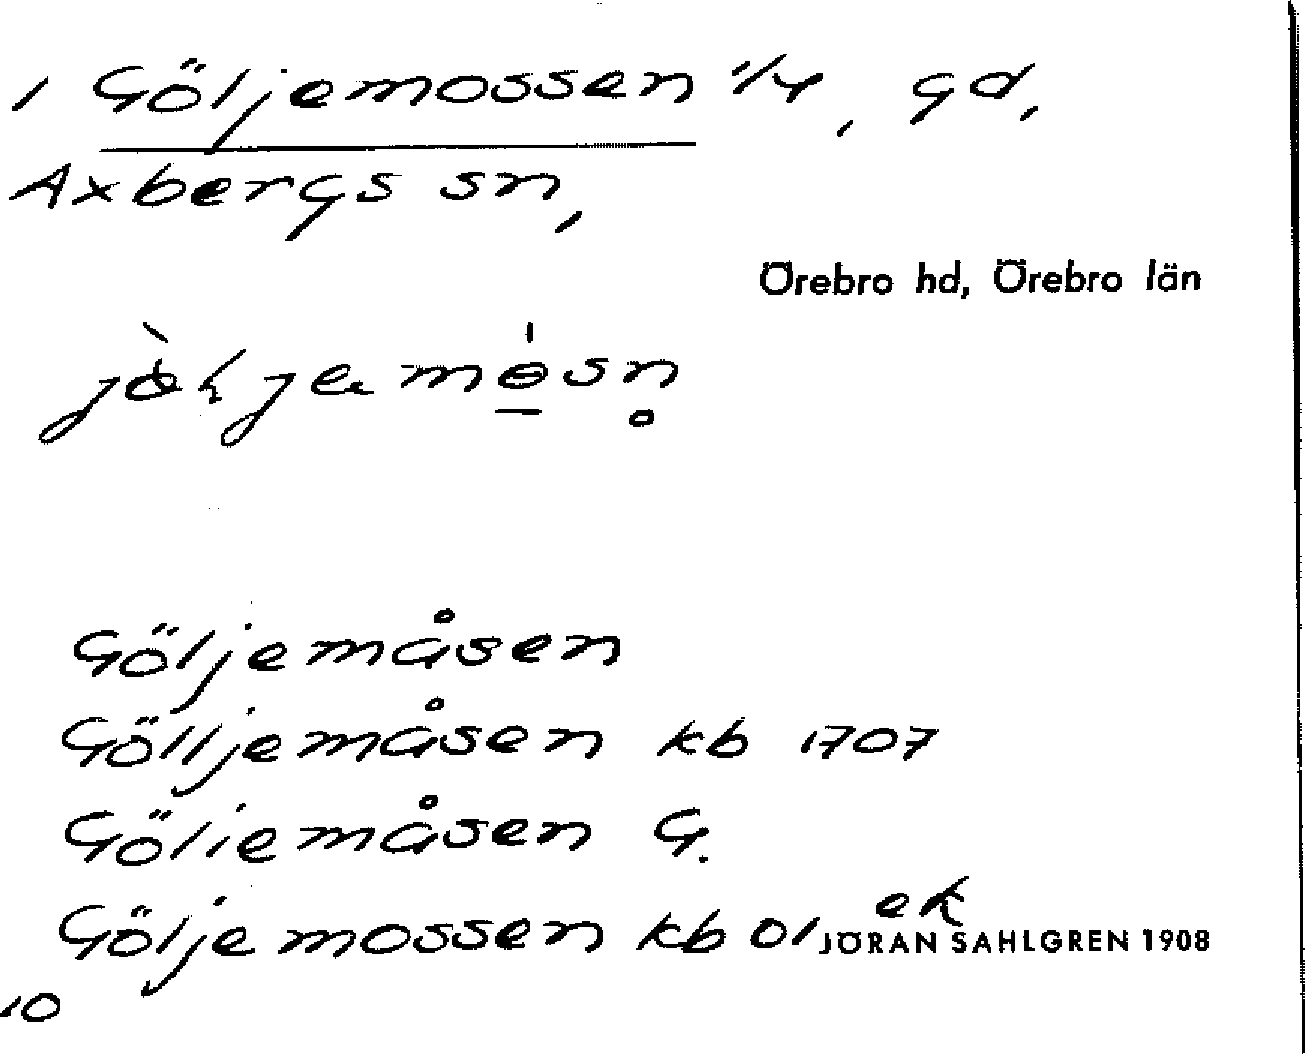 1 Göljemossen 1/4, gd,
Axbergs sn,
Örebro hd, Örebro län
Göljemåsen
Gölljemåsen kb 1707
Göliemåsen G.
Göljemossen kb 01 ek
JÖRAN SAHLGREN 1908
10